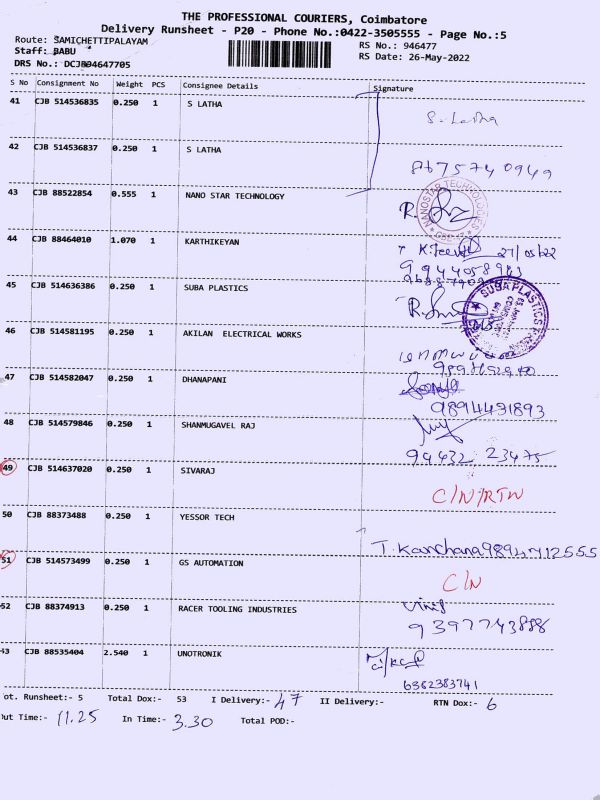 THE PROFESSIONAL COURIERS, Coimbatore
Delivery Runsheet - P20 - Phone No.:0422-3505555 - Page No.:5
Route: SAMICHETTIPALAYAM
RS No.: 946477
Staff: BABU
RS Date: 26-May-2022
DRS No.: DCJB04647705
S No Consignment No Weight PCS Consignee Details Signature
41 CJB 514536835 0.250 1 S LATHA S. Latha
42 CJB 514536837 0.250 1 S LATHA
8675740949
43 CJB 88522854 0.555 1 NANO STAR TECHNOLOGY
NANOSTAR TECHNOLOGIES
44 CJB 88464010 1.070 1 KARTHIKEYAN 27/05/22
45 CJB 514636386 0.250 1 SUBA PLASTICS
SUBA PLASTICS
46 CJB 514581195 0.250 1 AKILAN ELECTRICAL WORKS
47 CJB 514582047 0.250 1 DHANAPANI
9894491893
48 CJB 514579846 0.250 1 SHANMUGAVEL RAJ
94432 23475
49 CJB 514637020 0.250 1 SIVARAJ
C/N/RTN
50 CJB 88373488 0.250 1 YESSOR TECH
T. Kanchana 9894712555
51 CJB 514573499 0.250 1 GS AUTOMATION
C/N
52 CJB 88374913 0.250 1 RACER TOOLING INDUSTRIES
9397743888
53 CJB 88535404 2.540 1 UNOTRONIK
6382383741
ot. Runsheet:- 5 Total Dox:- 53 I Delivery:- 47 II Delivery:- RTN Dox:- 6
ut Time:- 11.25 In Time:- 3.30 Total POD:-